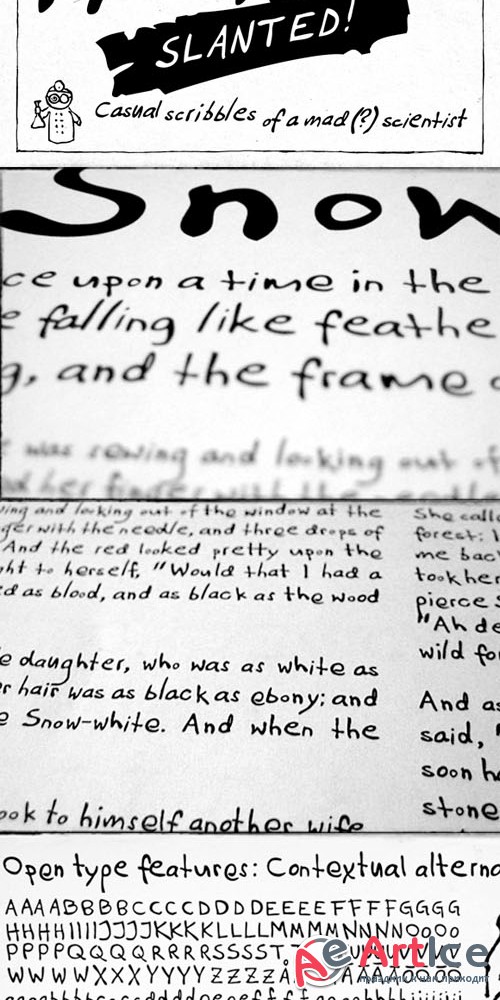 SLANTED!
Casual scribbles of a mad(?) scientist
Snow
ce upon a time in the
e falling like feathe
g, and the frame
t was sewing and looking out of
ing and looking out of the window at the
ger with the needle, and three drops of
And the red looked pretty upon the
ht to herself, "Would that I had a
d as blood, and as black as the wood
e daughter, who was as white as
r hair was as black as ebony; and
e Snow-white. And when the
ook to himself another wife
She calle
forest: I
me bac
took her
pierce s
"Ah de
wild fo
And as
said, "
soon ha
stone
Open type features: Contextual alterna
AAAABBBBCCCCDDDDEEEEFFFFGGGG
HHHHIIIIJJJJKKKKLLLLMMMMNNNNOOOO
PPPPQQQQRRRRSSSST
WWWWXXXXYYYYZZZZ
ArtIce